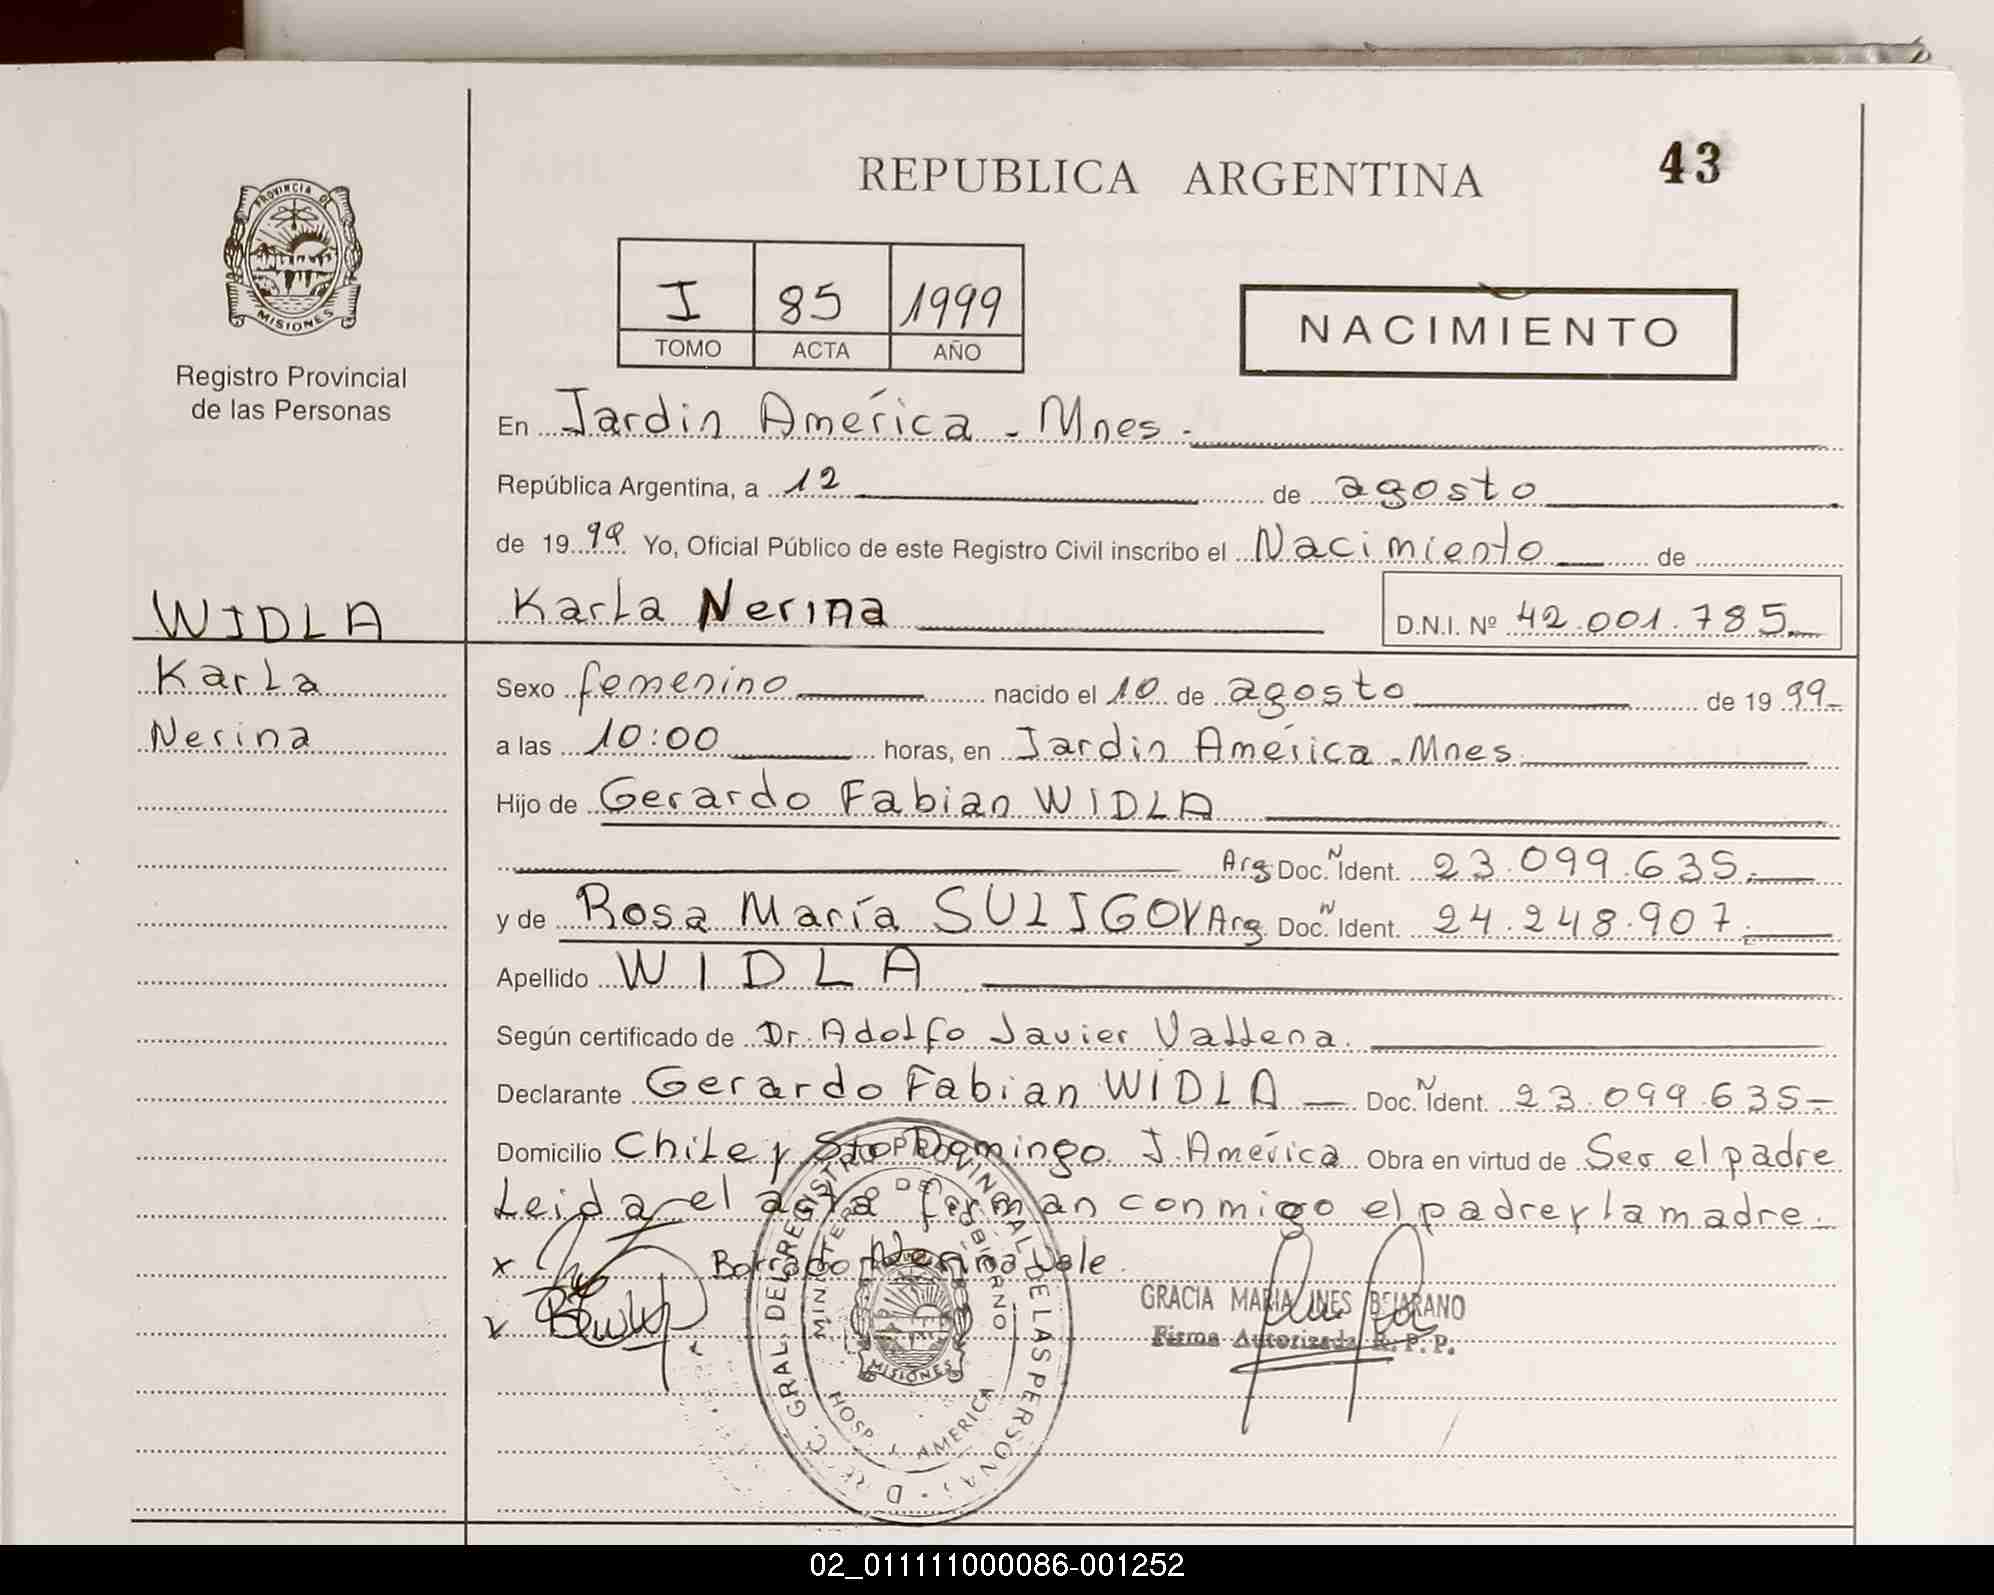 REPUBLICA ARGENTINA
43
PROVINCIA DE
MISIONES
Registro Provincial
de las Personas
I 85 1999
TOMO ACTA AÑO
NACIMIENTO
En Jardin América - Mnes -
República Argentina, a 12 de agosto
de 19 99 Yo, Oficial Público de este Registro Civil inscribo el Nacimiento de
WIDLA
Karla Nerina
D.N.I. Nº 42.001.785
Karla
Nerina
Sexo femenino nacido el 10 de agosto de 19 99
a las 10:00 horas, en Jardin América - Mnes
Hijo de Gerardo Fabian WIDLA
Arg Doc. N Ident. 23.099.635
y de Rosa María SULIGOY Arg. Doc. N Ident. 24.248.907
Apellido WIDLA
Según certificado de Dr. Adolfo Javier Vallena.
Declarante Gerardo Fabian WIDLA Doc. N Ident. 23.099.635
Domicilio Chile y Sto Domingo J. América Obra en virtud de Ser el padre
Leida el acta firman conmigo el padre y la madre.
x Borrado Nerina Vale.
GRACIA MARIA INES BEJARANO
Firma Autorizada R.P.P.
GRAL. DEL REGISTRO PROVINCIAL DE LAS PERSONAS
MINISTERIO DE GOBIERNO
MISIONES
HOSP. AMERICA
02_011111000086-001252